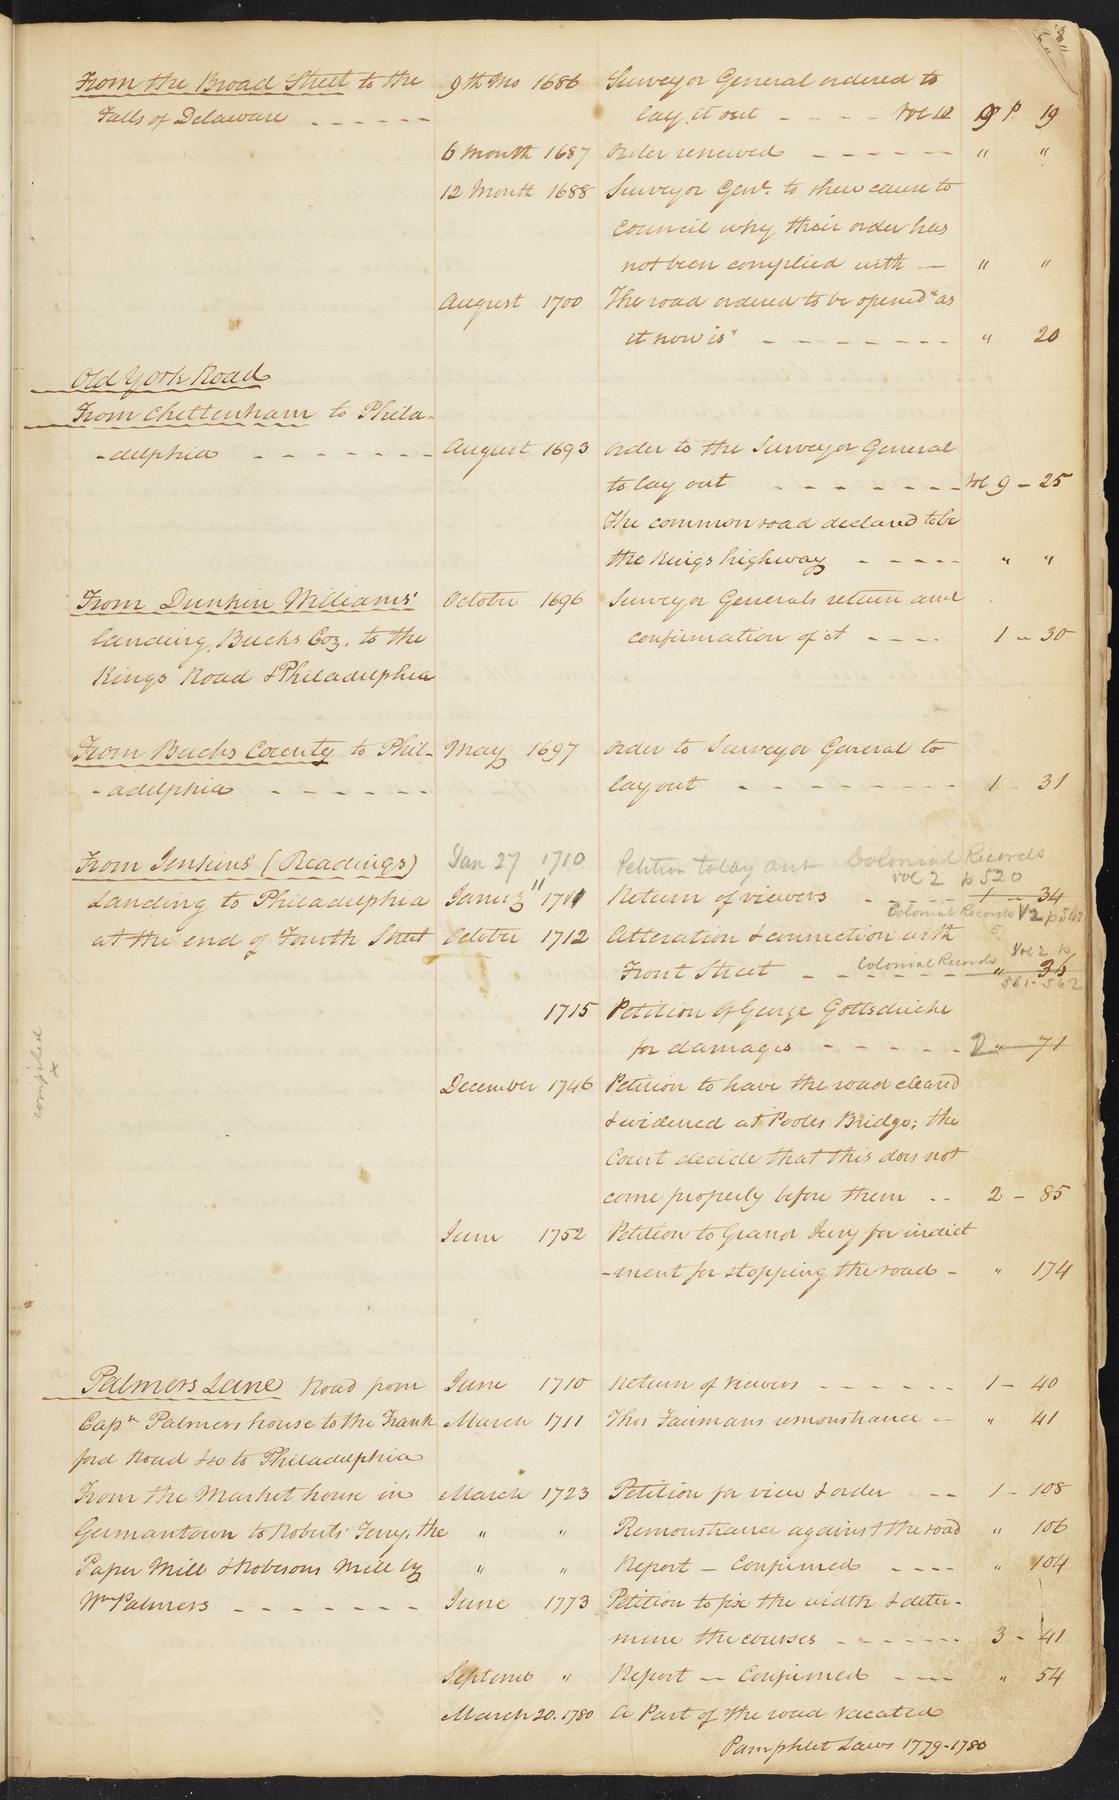 From the Broad Street to the 9th Mo 1686 Surveyor General ordered to
Falls of Delaware - - - - - - lay it out - - - - Vol 12 9 P 19
6 Month 1687 Order renewed - - - - - " "
12 Month 1688 Surveyor Genl. to shew cause to
Council why their order has
not been complied with — " "
August 1700 The road ordered to be opened "as
it now is" - - - - - - - - " 20
Old York Road
From Cheltenham to Phila-
-delphia - - - - - - - August 1693 Order to the Surveyor General
to lay out - - - - - - - Vol 9 - 25
The common road declared to be
the Kings highway - - - - - " "
From Dunkin Williams' October 1696 Surveyor Generals return and
landing, Bucks Coy. to the confirmation of it - - - - 1 - 30
Kings Road & Philadelphia
From Bucks County to Phil- May 1697 Order to Surveyor General to
-adelphia - - - - - - lay out - - - - - - - - - 1 - 31
From Jenkins' (Readings) Jan 27 1710 Petition to lay out Colonial Records
vol 2 p 520
Landing to Philadelphia Januy " 1711 Return of viewers - - - - - 1 - 34
Colonial Records V2 p
at the end of Fourth Street October 1712 Alteration & connection with
Vol 2 p
Front Street - - Colonial Records - - " 36
561-562
1715 Petition of George Gottschicke
for damages - - - - - - 2 " 71
compiled
x
December 1746 Petition to have the road cleared
& widened at Pooles Bridge; the
Court decide that this does not
come properly before them - - 2 - 85
June 1752 Petition to Grand Jury for indict
-ment for stopping the road - " 174
Palmers Lane Road from June 1710 Return of viewers - - - - - - 1 - 40
Capn Palmers house to the Frank March 1711 Thos Fairmans remonstrance - - " 41
ford Road & so to Philadelphia
From the Market house in March 1723 Petition for view & order - - 1 - 108
Germantown to Roberts' Ferry, the " " Remonstrance against the road " 106
Paper Mill & Robesons Mill by " " Report — Confirmed - - - - " 104
Wm Palmers - - - - - - - June 1773 Petition to fix the width & deter-
mine the courses - - - - - - 3 - 41
Septemb " Report — Confirmed - - - - " 54
March 20. 1780 A Part of the road vacated
Pamphlet Laws 1779-1780